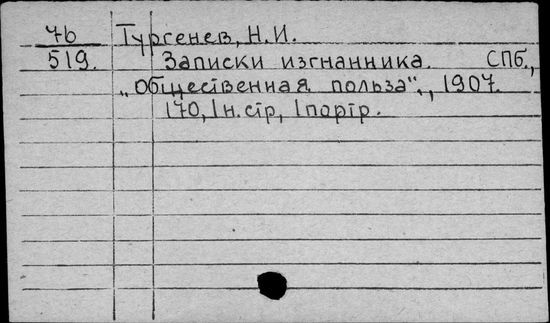 76 Тургенев, Н.И.
519. Записки изгнанника. СПб.,
„Общественная польза"., 1907.
170, 1 н.стр, 1 портр.